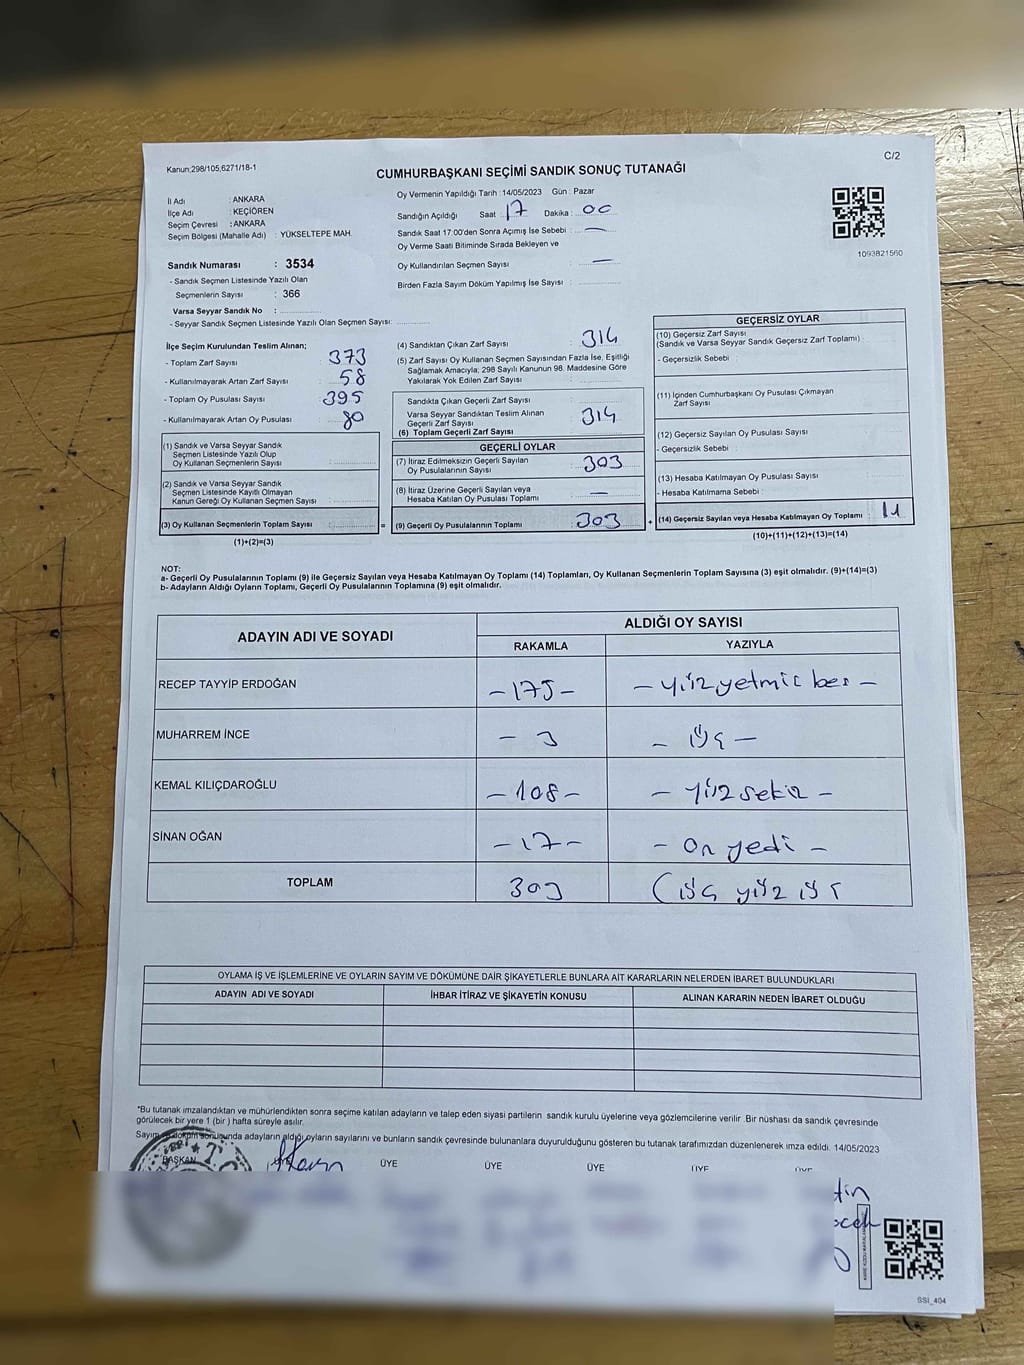 Kanun;298/105;6271/18-1
C/2
CUMHURBAŞKANI SEÇİMİ SANDIK SONUÇ TUTANAĞI
İl Adı : ANKARA
İlçe Adı : KEÇİÖREN
Seçim Çevresi : ANKARA
Seçim Bölgesi (Mahalle Adı) : YÜKSELTEPE MAH.
Sandık Numarası : 3534
- Sandık Seçmen Listesinde Yazılı Olan
Seçmenlerin Sayısı : 366
Varsa Seyyar Sandık No :
- Seyyar Sandık Seçmen Listesinde Yazılı Olan Seçmen Sayısı:
Oy Vermenin Yapıldığı Tarih : 14/05/2023 Gün : Pazar
Sandığın Açıldığı Saat : 17 Dakika : 00
Sandık Saat 17:00'den Sonra Açılmış İse Sebebi : —
Oy Verme Saati Bitiminde Sırada Bekleyen ve
Oy Kullandırılan Seçmen Sayısı : —
Birden Fazla Sayım Döküm Yapılmış İse Sayısı :
1093821560
İlçe Seçim Kurulundan Teslim Alınan;
- Toplam Zarf Sayısı : 373
- Kullanılmayarak Artan Zarf Sayısı : 58
- Toplam Oy Pusulası Sayısı : 395
- Kullanılmayarak Artan Oy Pusulası : 80
(1) Sandık ve Varsa Seyyar Sandık
Seçmen Listesinde Yazılı Olup
Oy Kullanan Seçmenlerin Sayısı :
(2) Sandık ve Varsa Seyyar Sandık
Seçmen Listesinde Kayıtlı Olmayan
Kanun Gereği Oy Kullanan Seçmen Sayısı :
(3) Oy Kullanan Seçmenlerin Toplam Sayısı : =
(1)+(2)=(3)
(4) Sandıktan Çıkan Zarf Sayısı : 314
(5) Zarf Sayısı Oy Kullanan Seçmen Sayısından Fazla İse, Eşitliği
Sağlamak Amacıyla; 298 Sayılı Kanunun 98. Maddesine Göre
Yakılarak Yok Edilen Zarf Sayısı :
Sandıkta Çıkan Geçerli Zarf Sayısı :
Varsa Seyyar Sandıktan Teslim Alınan
Geçerli Zarf Sayısı :
(6) Toplam Geçerli Zarf Sayısı : 314
GEÇERLİ OYLAR
(7) İtiraz Edilmeksizin Geçerli Sayılan
Oy Pusulalarının Sayısı : 303
(8) İtiraz Üzerine Geçerli Sayılan veya
Hesaba Katılan Oy Pusulası Toplamı : —
(9) Geçerli Oy Pusulalarının Toplamı : 303 +
GEÇERSİZ OYLAR
(10) Geçersiz Zarf Sayısı
(Sandık ve Varsa Seyyar Sandık Geçersiz Zarf Toplamı) :
- Geçersizlik Sebebi :
(11) İçinden Cumhurbaşkanı Oy Pusulası Çıkmayan
Zarf Sayısı :
(12) Geçersiz Sayılan Oy Pusulası Sayısı :
- Geçersizlik Sebebi :
(13) Hesaba Katılmayan Oy Pusulası Sayısı :
- Hesaba Katılmama Sebebi :
(14) Geçersiz Sayılan veya Hesaba Katılmayan Oy Toplamı : 11
(10)+(11)+(12)+(13)=(14)
NOT:
a- Geçerli Oy Pusulalarının Toplamı (9) ile Geçersiz Sayılan veya Hesaba Katılmayan Oy Toplamı (14) Toplamları, Oy Kullanan Seçmenlerin Toplam Sayısına (3) eşit olmalıdır. (9)+(14)=(3)
b- Adayların Aldığı Oyların Toplamı, Geçerli Oy Pusulalarının Toplamına (9) eşit olmalıdır.
ADAYIN ADI VE SOYADI ALDIĞI OY SAYISI
RAKAMLA YAZIYLA
RECEP TAYYİP ERDOĞAN - 175 - - yüz yetmiş beş -
MUHARREM İNCE - 3 - üç -
KEMAL KILIÇDAROĞLU - 108 - - yüz sekiz -
SİNAN OĞAN - 17 - - on yedi -
TOPLAM 303 (üç yüz üç
OYLAMA İŞ VE İŞLEMLERİNE VE OYLARIN SAYIM VE DÖKÜMÜNE DAİR ŞİKAYETLERLE BUNLARA AİT KARARLARIN NELERDEN İBARET BULUNDUKLARI
ADAYIN ADI VE SOYADI İHBAR İTİRAZ VE ŞİKAYETİN KONUSU ALINAN KARARIN NEDEN İBARET OLDUĞU
*Bu tutanak imzalandıktan ve mühürlendikten sonra seçime katılan adayların ve talep eden siyasi partilerin sandık kurulu üyelerine veya gözlemcilerine verilir. Bir nüshası da sandık çevresinde
görülecek bir yere 1 (bir ) hafta süreyle asılır.
Sayım ve döküm sonucunda adayların aldığı oyların sayılarını ve bunların sandık çevresinde bulunanlara duyurulduğunu gösteren bu tutanak tarafımızdan düzenlenerek imza edildi. 14/05/2023
BAŞKAN ÜYE ÜYE ÜYE ÜYE ÜYE
SSI_404